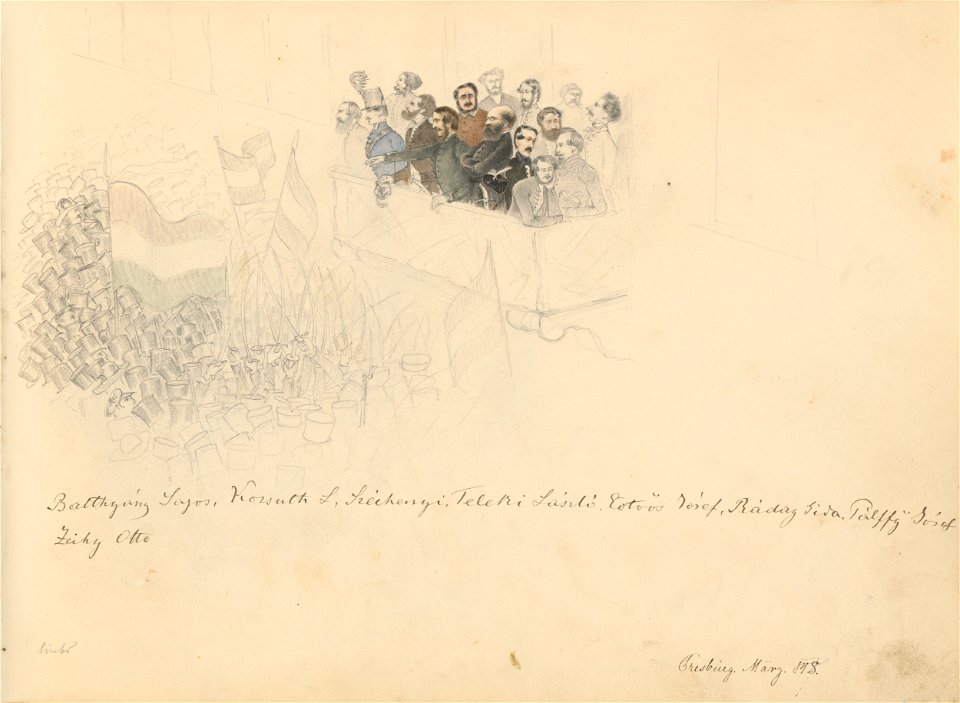 Batthyány Lajos, Kossuth L, Széchenyi, Teleki László, Eötvös Jósef, Ráday Gida, Pálffÿ Jósef
Zichy Otto
Presburg. März. 848.